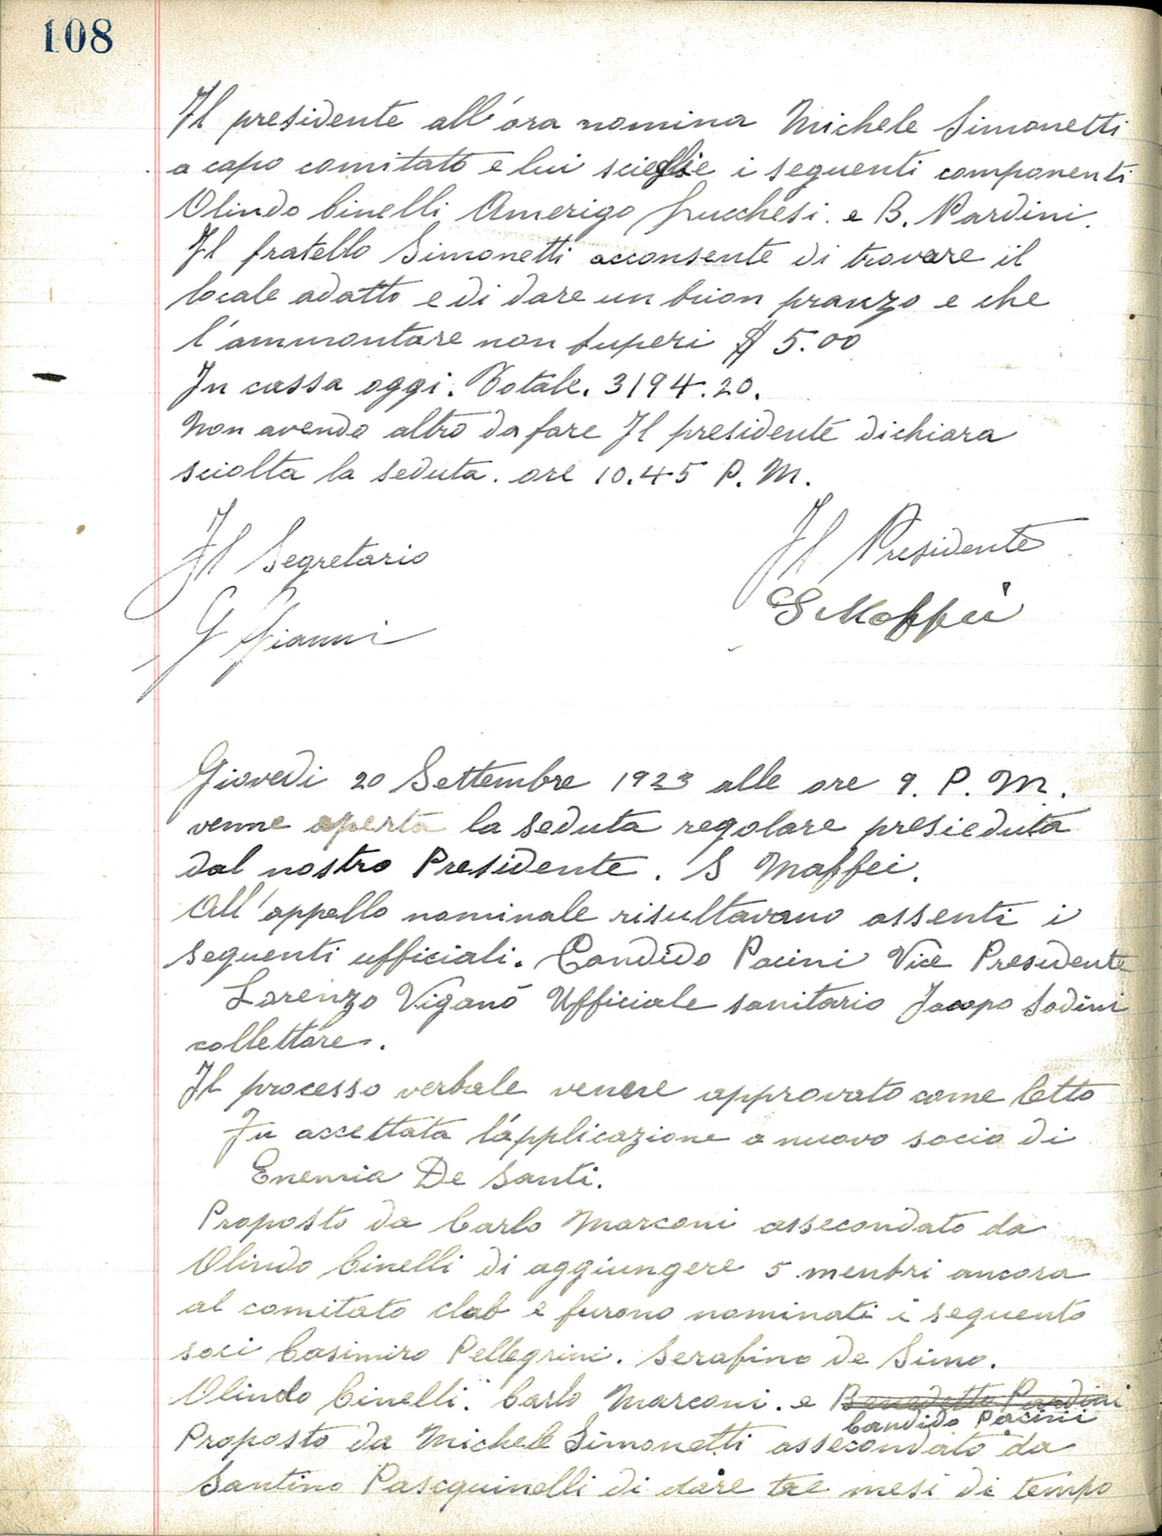 108
Il presidente all'ora nomina Michele Simonetti
a capo comitato e lui scieglie i seguenti componenti
Olindo Cinelli Amerigo Lucchesi. e B. Pardini.
Il fratello Simonetti acconsente di trovare il
locale adatto e di dare un buon pranzo e che
l'ammontare non superi $ 5.00
In cassa oggi. Totale. 3194.20.
Non avendo altro da fare Il presidente dichiara
sciolta la seduta. ore 10.45 P. M.
Il Segretario
Il Presidente
G Gianni
S Maffei
Giovedi 20 Settembre 1923 alle ore 9. P. M.
venne aperta la seduta regolare presieduta
dal nostro Presidente. S Maffei.
All'appello nominale risultavano assenti i
seguenti ufficiali. Candido Pacini Vice Presidente
Lorenzo Viganó Ufficiale sanitario Jacopo Sodini
collettore.
Il processo verbale venne approvato come letto
Fu accettata l'applicazione a nuovo socio di
Enemia De Santi.
Proposto da Carlo Marconi assecondato da
Olindo Cinelli di aggiungere 5 menbri ancora
al comitato club e furono nominati i seguento
soci Casimiro Pellegrini. Serafino de Simo.
Olindo Cinelli. Carlo Marconi. e Benedetto Pardini
Candido Pacini
Proposto da Michele Simonetti assecondato da
Santino Pascquinelli di dare tre mesi di tempo